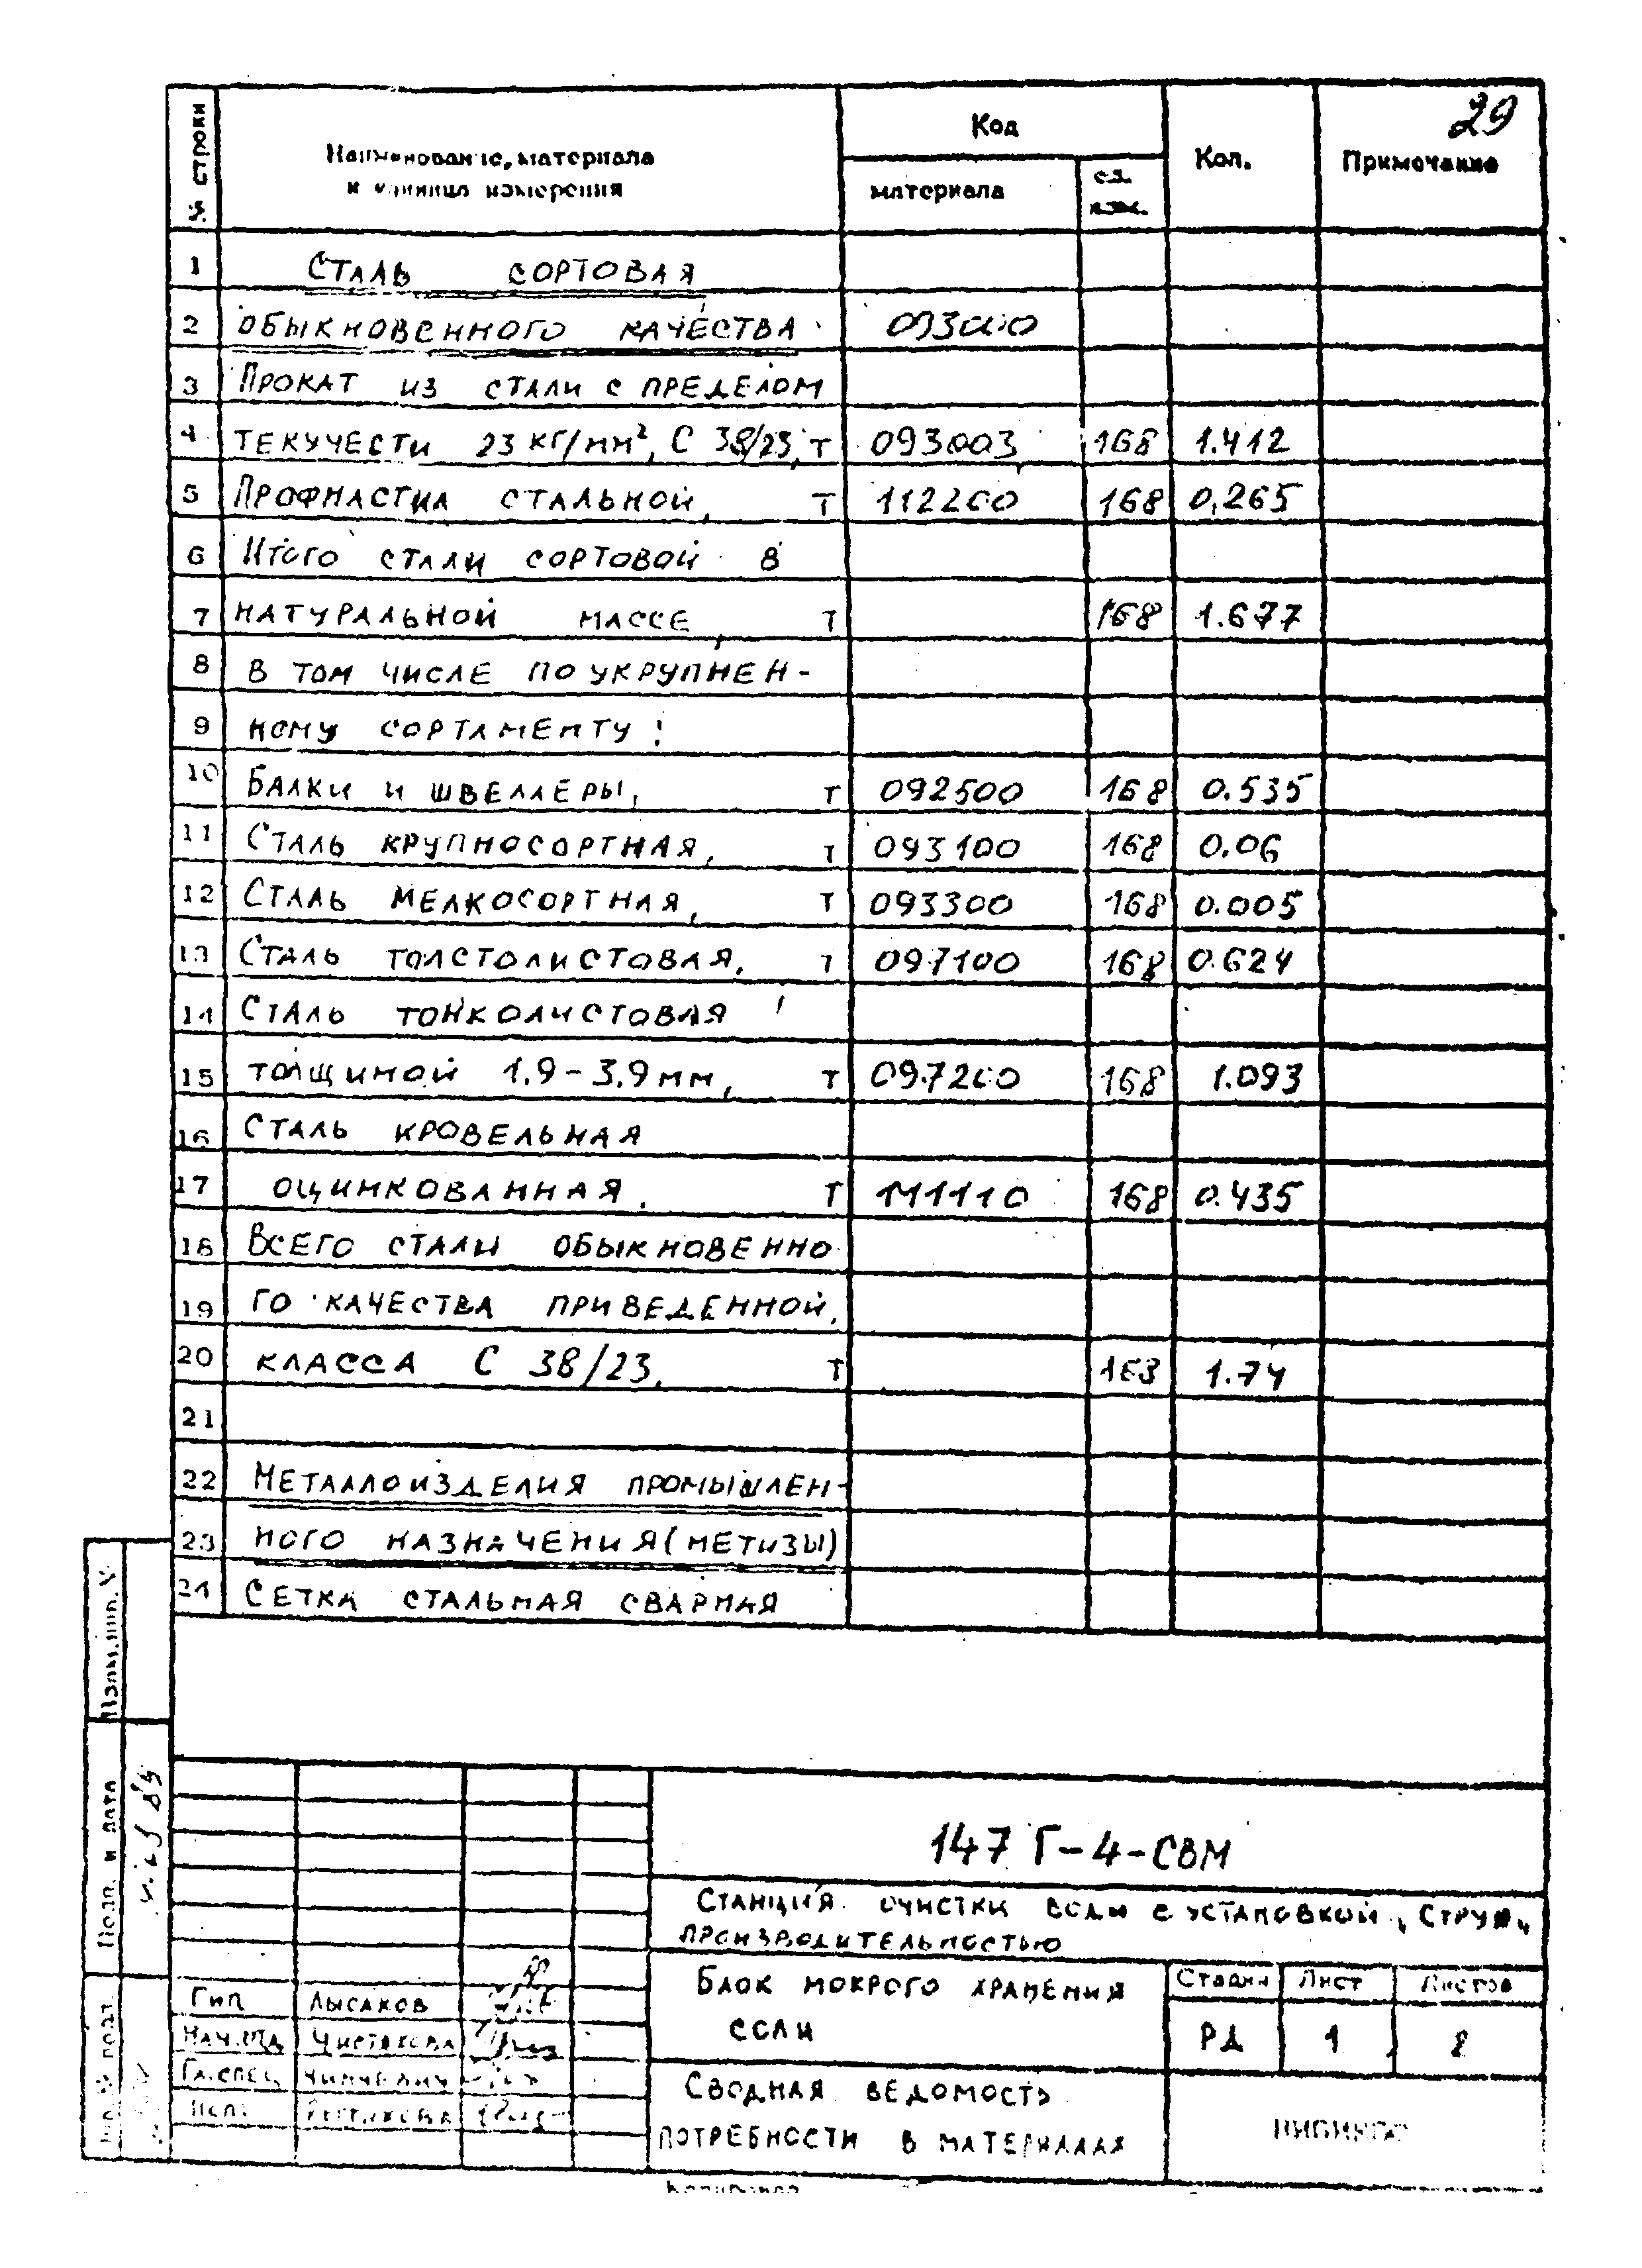 29
№ строки
Наименование, материала
и единица измерения
Код
материала
ед.
изм.
Кол.
Примечание
1 Сталь сортовая
2 обыкновенного качества 093000
3 Прокат из стали с пределом
4 текучести 23 кг/мм², С 38/23, т 093003 168 1.412
5 Профнастил стальной, т 112200 168 0,265
6 Итого стали сортовой в
7 натуральной массе, т 168 1.677
8 в том числе по укрупнен-
9 ному сортаменту:
10 Балки и швеллеры, т 092500 168 0.535
11 Сталь крупносортная, т 093100 168 0.06
12 Сталь мелкосортная, т 093300 168 0.005
13 Сталь толстолистовая, т 097100 168 0.624
14 Сталь тонколистовая
15 толщиной 1.9-3.9 мм, т 097200 168 1.093
16 Сталь кровельная
17 оцинкованная, т 111110 168 0.435
18 Всего стали обыкновенно
19 го качества приведенной,
20 класса С 38/23, т 163 1.74
21
22 Металлоизделия промышлен-
23 ного назначения (метизы)
24 Сетка стальная сварная
Взам. инв. №
Подп. и дата
147 Г-4-СВМ
Станция очистки воды с установкой „Струя„
производительностью
Блок мокрого хранения
соли
Стадия Лист Листов
РД 1 8
Гип Лысаков
Нач.отд Чистякова
Гл.спец
Сводная ведомость
потребности в материалах